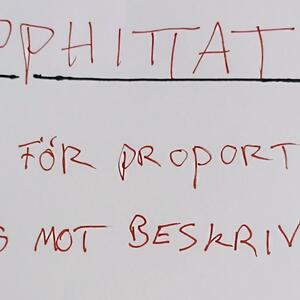 OPHITTAT
FÖR PROPORT
G MOT BESKRIV